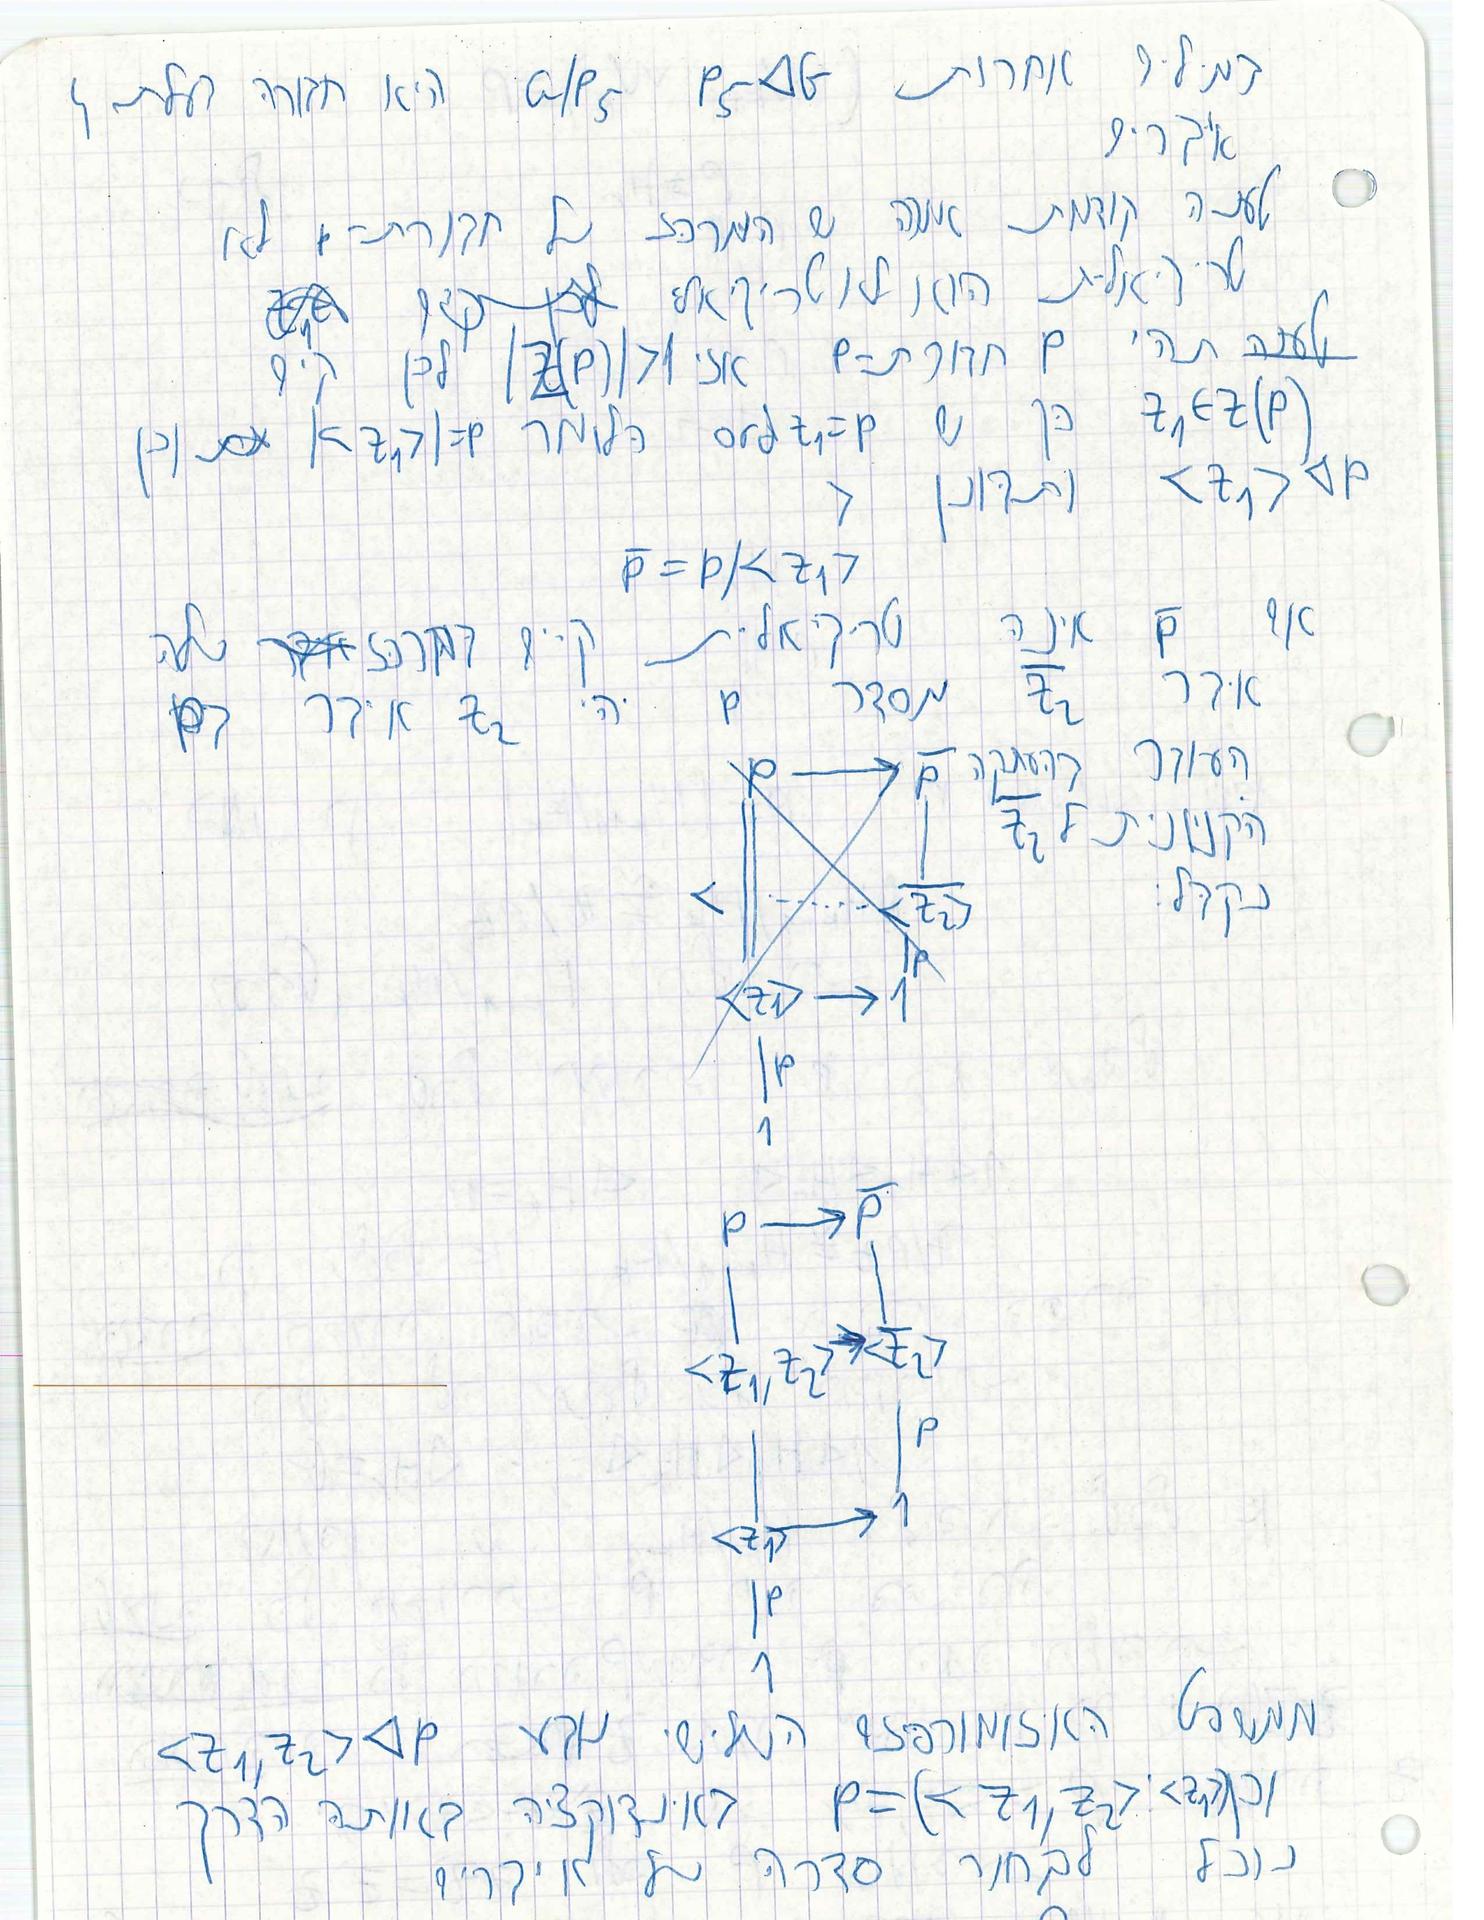 במילים אחרות P₅ ◁ G G/P₅ היא חבורה בעלת 4
איברים
טענה קודמת אמרה ש המרכז של חבורת-p לא
טריויאלית הוא לא טריויאלי
טענה תהי P חבורת-p אזי |Z(P)|>1 לכן קיים
z₁∈Z(P) כך ש z₁=p כלומר |<z₁>|=p וכן
<z₁> ◁ P ונתבונן ב
P̄ = P/<z₁>
אם P̄ אינה טריויאלית קיים במרכז שלה
איבר z̄₂ מסדר p יהי z₂ איבר בP
העובר בהעתקה
הקנונית ל z̄₂
נקבל:
P → P̄
< <z̄₂>
p
<z₁> → 1
p
1
P → P̄
<z₁,z₂> → <z̄₂>
p
<z₁> → 1
p
1
ממשפט האיזומורפיזם השלישי נובע <z₁,z₂> ◁ P
וכן p=(<z₁,z₂>:<z₁>) באינדוקציה באותה הדרך
נוכל לבחור סדרה של איברים